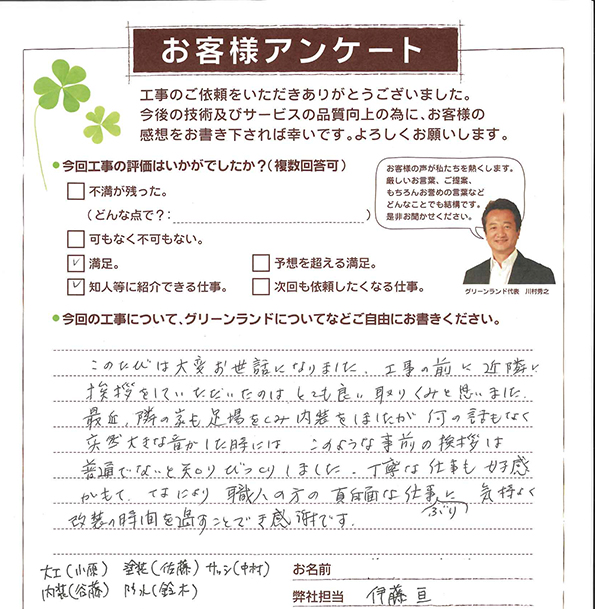 お客様アンケート
工事のご依頼をいただきありがとうございました。
今後の技術及びサービスの品質向上の為に、お客様の
感想をお書き下されば幸いです。よろしくお願いします。
●今回工事の評価はいかがでしたか?(複数回答可)
不満が残った。
(どんな点で?: )
可もなく不可もない。
満足。
予想を超える満足。
知人等に紹介できる仕事。
次回も依頼したくなる仕事。
お客様の声が私たちを熱くします。
厳しいお言葉、ご提案、
もちろんお誉めの言葉など
どんなことでも結構です。
是非お聞かせください。
グリーンランド代表 川村秀之
●今回の工事について、グリーンランドについてなどご自由にお書きください。
このたびは大変お世話になりました。工事の前に近隣に
挨拶をしていただいたのはとても良い取りくみと思いました。
最近、隣の家も足場をくみ内装をしましたが何の話もなく
突然大きな音がした時には このような事前の挨拶は
普通でないと知りびっくりしました。丁寧な仕事も好感
がもて、なにより職人の方の真面目な仕事ぶりに 気持よく
改装の時間を過すことでき感謝です。
大工(小原) 塗装(佐藤) サッシ(中村)
内装(谷藤) 防水(鈴木)
お名前
弊社担当 伊藤 亘